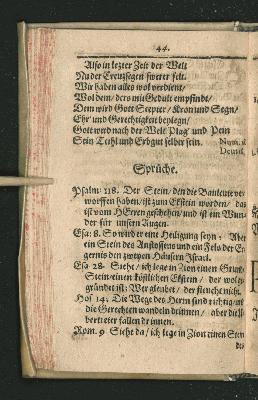 44.
Also in letzter Zeit der Welt
Nu der Creutzsegen schwerer felt.
Wir haben alles wol verdient/
Wol dem/ ders mit Gedult empfindt/
Dem wird Gott Scepter/ Kron und Segn/
Ehr und Gerechtigkeit beylegn/
Gott wird nach der Welt Plag und Pein
Sein Teihl und Erbgut selber sein.
Num.
Deut.
Sprüche.
Psalm: 118. Der Stein/ den die Bauleute ver-
worffen haben/ ist zum Ekstein worden/ das
ist vom HErren geschehen/ und ist ein Wun-
der für unsern Augen.
Esa: 8. So wird er eine Heiligung sehn/ Aber
ein Stein des Anstossens und ein Fels der Er-
gernis den zweyen Häusern Israel.
Esa 28. Siehe/ ich lege in Zion einen Grund-
Stein/ einen köstlichen Ekstein/ der wolge-
gründet ist: Wer gleubet/ der fleucht nicht.
Hos 14. Die Wege des Herrn sind richtig/ und
die Gerechten wandeln drinnen/ aber die Ü-
bertreter fallen drinnen.
Rom. 9 Sieht da/ ich lege in Zion einen Stein
des